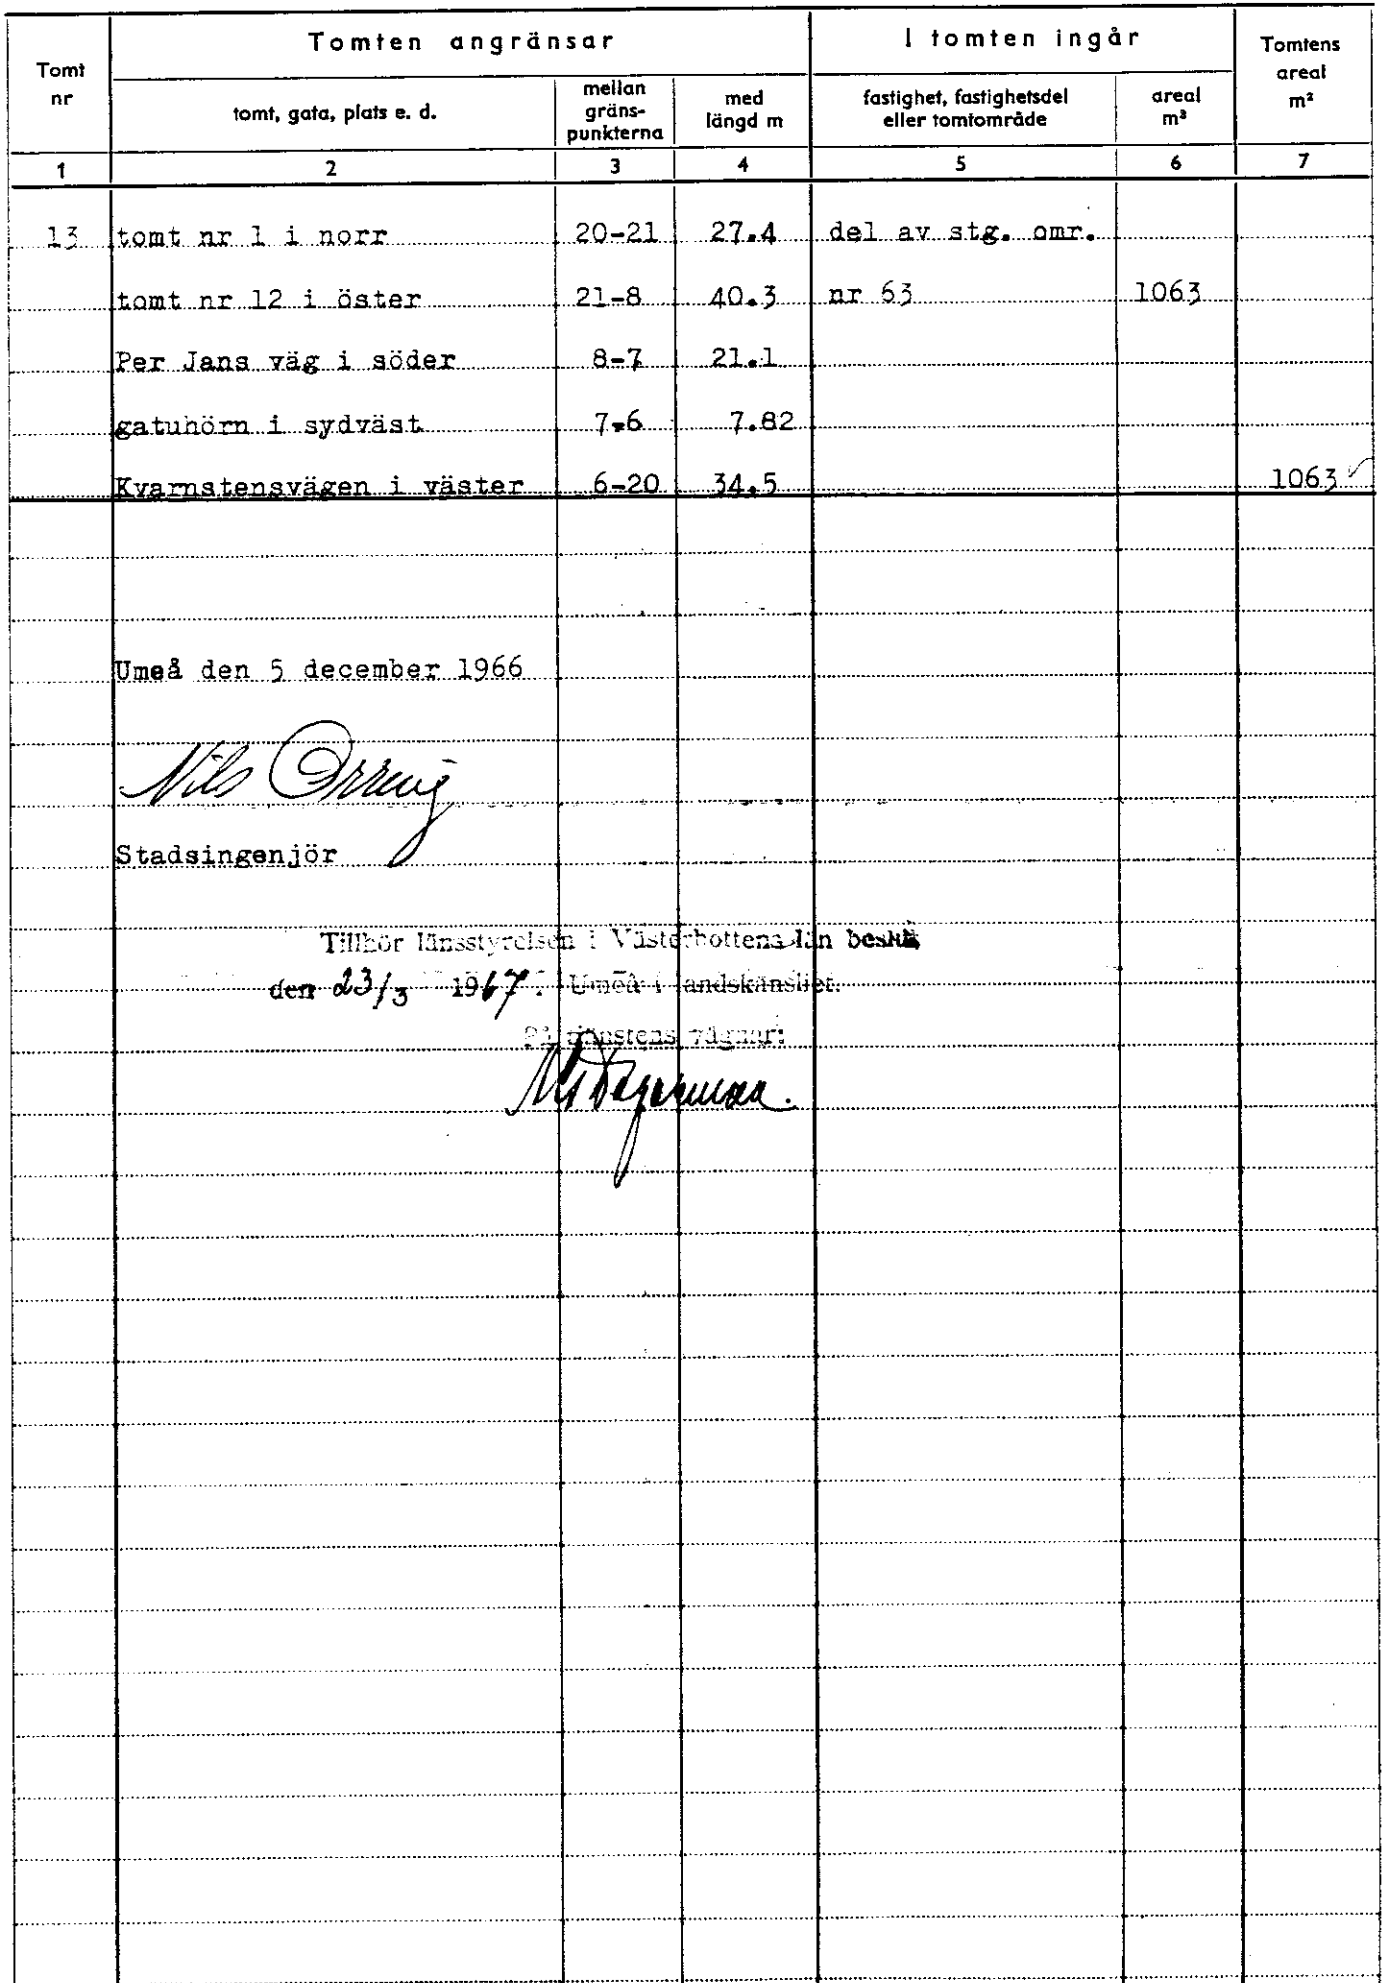 Tomten angränsar I tomten ingår
Tomt nr
tomt, gata, plats e. d.
mellan gräns-punkterna
med längd m
fastighet, fastighetsdel eller tomtområde
areal m²
Tomtens areal m²
1 2 3 4 5 6 7
13 tomt nr 1 i norr 20-21 27.4 del av stg. omr.
tomt nr 12 i öster 21-8 40.3 nr 63 1063
Per Jans väg i söder 8-7 21.1
gatuhörn i sydväst 7-6 7.82
Kvarnstensvägen i väster 6-20 34.5 1063
Umeå den 5 december 1966
Nils
Stadsingenjör
Tillhör länsstyrelsen i Västerbottens län
den 23/3 1967. Umeå i landskansliet.
På tjänstens vägnar: